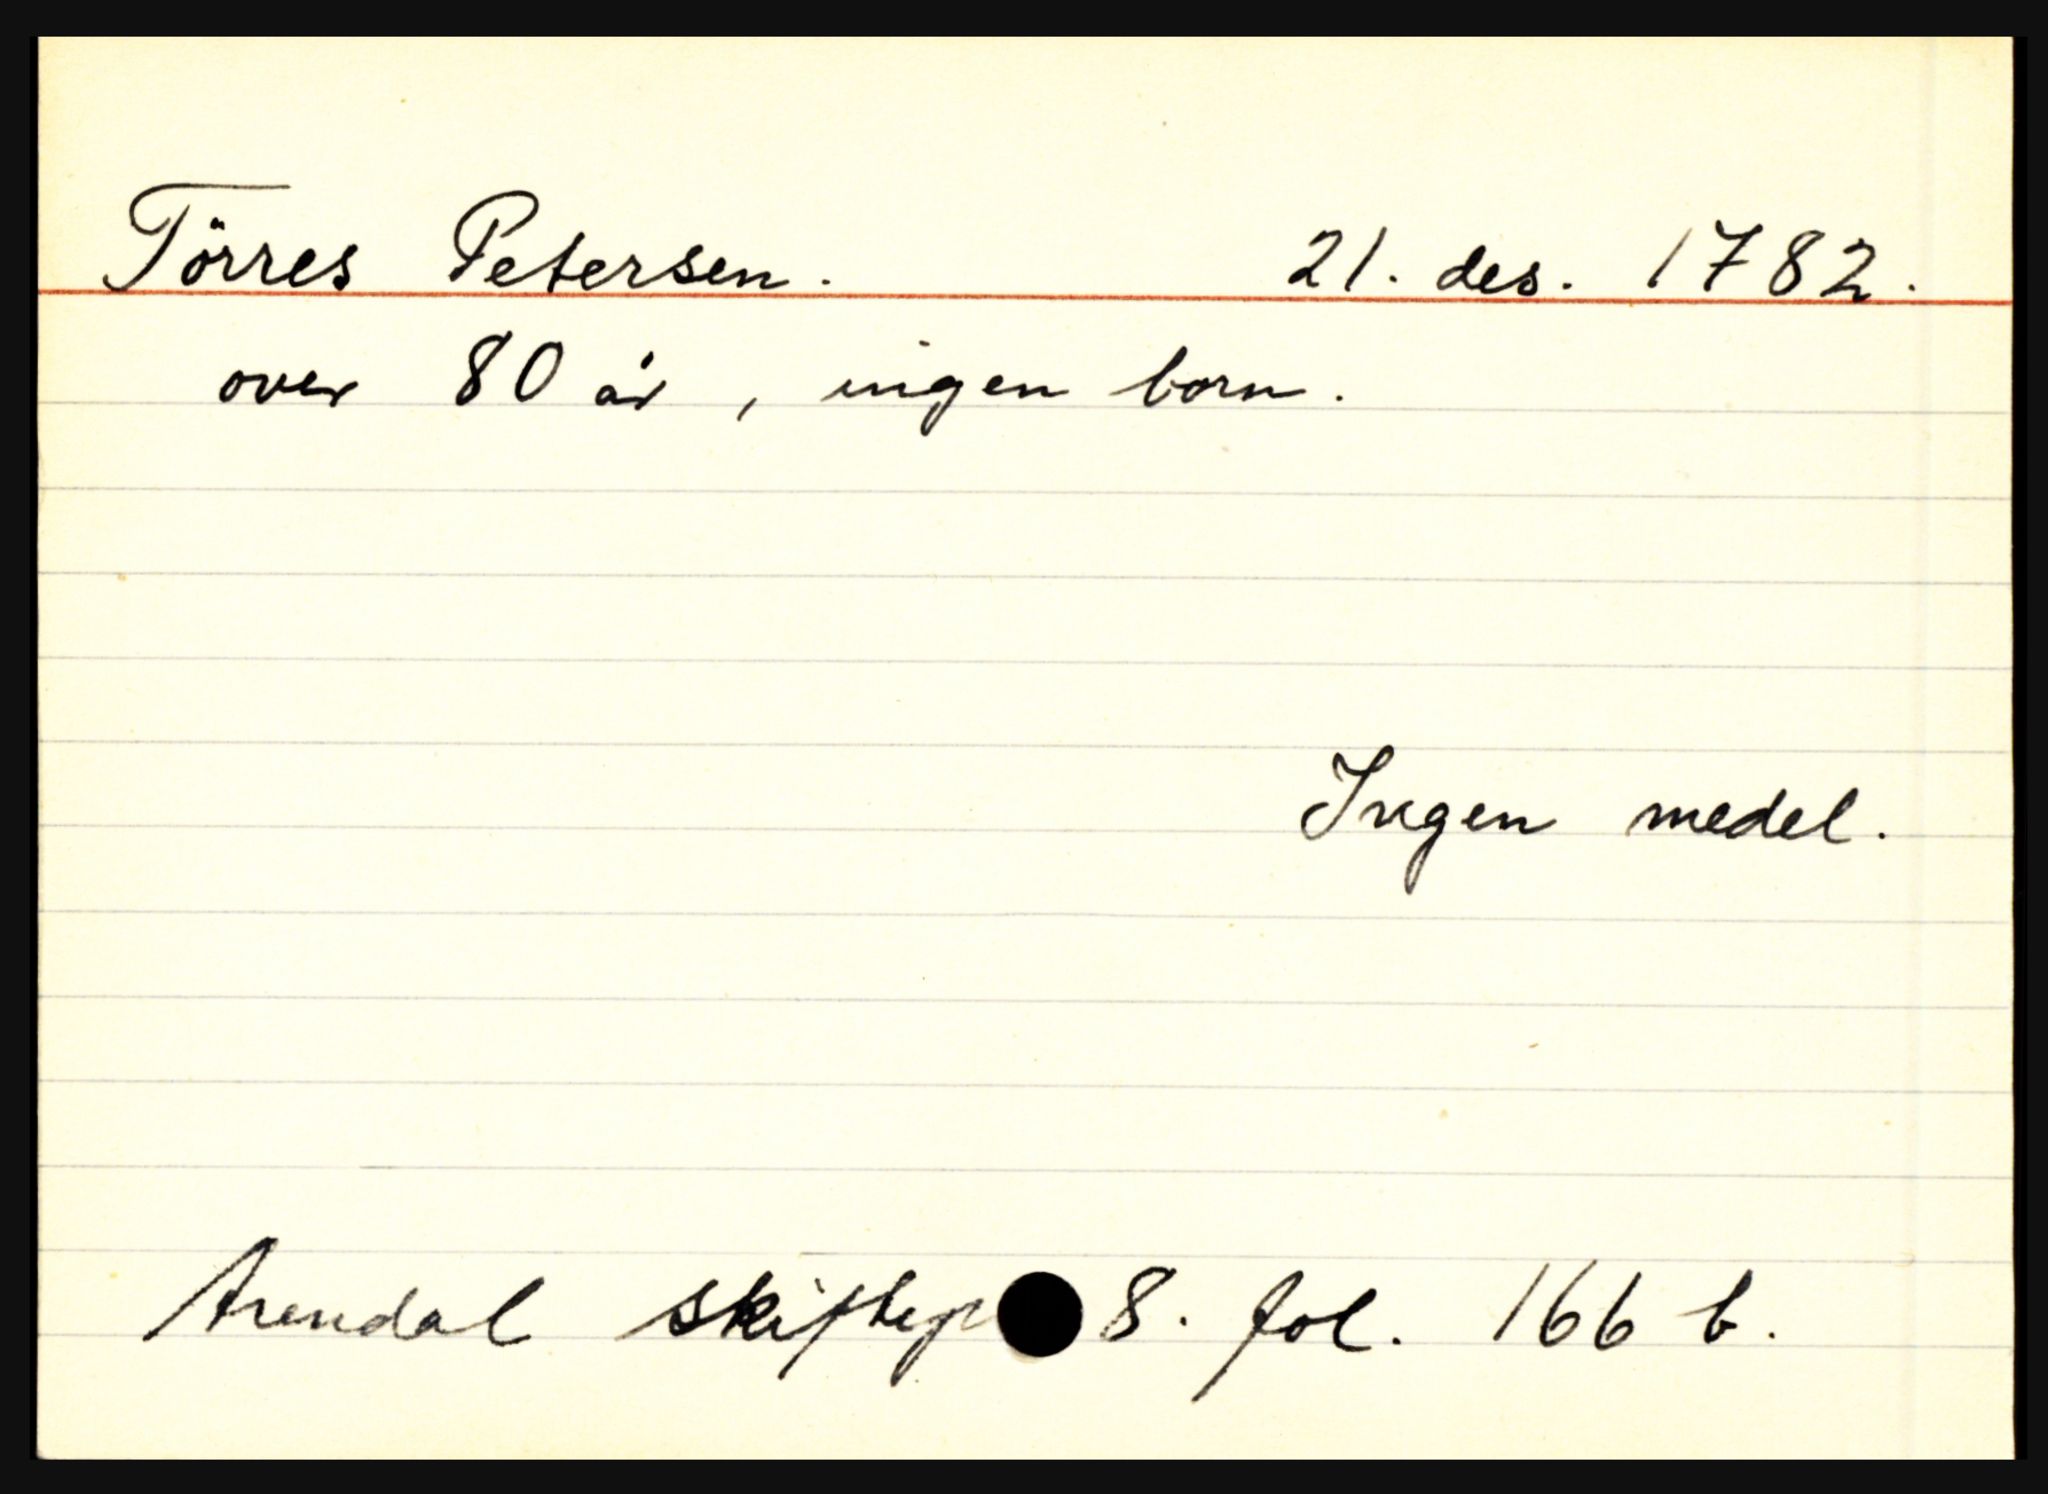 Törres Petersen. 21. des. 1782.
over 80 år, ingen born.
Ingen medel.
Arendal 8. fol. 166 b.